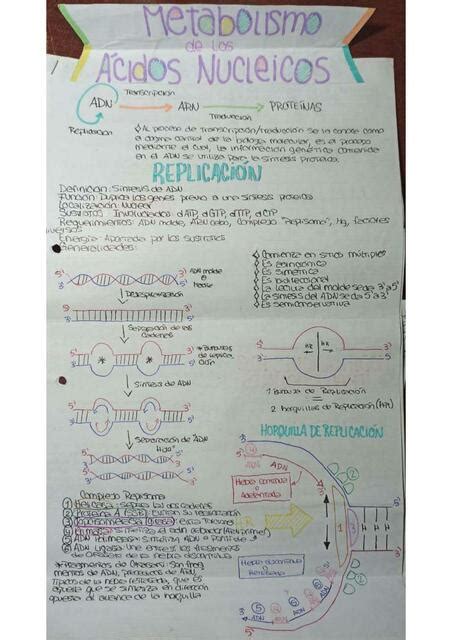 Metabolismo
de los
Ácidos Nucleicos
Transcripción
ADN → ARN → PROTEÍNAS
Replicación
Traducción
Al proceso de transcripción/traducción se le conoce como
el dogma central de la biología molecular, es el proceso
mediante el cual, la información genética contenida
en el ADN se utiliza para la síntesis proteica.
REPLICACIÓN
Definición: Síntesis de ADN
Función: Duplica los genes previo a una síntesis proteica
Localización: Nuclear
Sustratos Involucrados: dATP, dGTP, dTTP, dCTP
Requerimientos: ADN molde, ARN cebo, Complejo "Replisoma", Mg, factores
diversos
Energía: Aportada por los sustratos
Generalidades:
Comienza en sitios múltiples
Es
Es simétrica
Es bidireccional
La lectura del molde se da 3' a 5'
La síntesis del ADN se da 5' a 3'
Es semiconservativa
5' 3'
3' 5'
ADN molde
o
Madre
5' 3'
3' 5'
Separación de las
cadenas
5' 3'
3' 5'
* Burbujas
de
Síntesis de ADN
5' 3'
3' 5'
Separación de ADN
"Hijo"
5' 3'
3' 5'
HR HR
5' 3'
3' 5'
1 Burbuja de Replicación
=
2 horquillas de Replicación
HORQUILLA DE REPLICACIÓN
3'
5'
ADN
Hebra continua
o
Adelantada
1
3
2
Hebra discontinua
o
Retrasada
3'
5'
Complejo Replisoma
1 Helicasa: separa las dos cadenas
2 Proteína A (SSB): evitan su reasociación
3 Topoisomerasa (girasa): evita torciones
4 Primasa: sintetiza el ARN cebador
5 ADN Polimerasa: sintetiza ADN a partir de
6 ADN Ligasa: Une entre sí los fragmentos
de Okazaki de la hebra discontinua
*Fragmentos de Okazaki: Son frag
mentos de ADN, productos de ADN,
típicos de la hebra retrasada, que es
aquella que se sintetiza en dirección
opuesta al avance de la horquilla